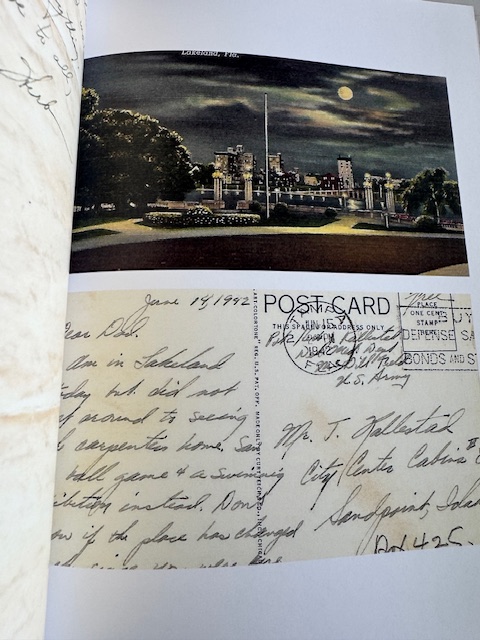 to all,
Herb
Lakeland, Fla.
June 14, 1942
Dear Dad.
am in Lakeland
day but did not
around to seeing
carpenters home. Saw
ball game & a swimming
ibition instead. Don't
if the place has changed
since you were here
"ART-COLORTONE" REG. U.S. PAT. OFF. MADE ONLY BY CURT TEICH & CO., INC. CHICAGO
POST CARD
THIS SPACE FOR ADDRESS ONLY
Free
PLACE
ONE CENT
STAMP
TAMPA
JUN 15
1942
FLA.
BUY
DEFENSE SAV
BONDS AND ST
Hallestad
U.S. Army
Mr. T. Hallestad
City Center Cabins
Sandpoint, Idaho
Box 425.